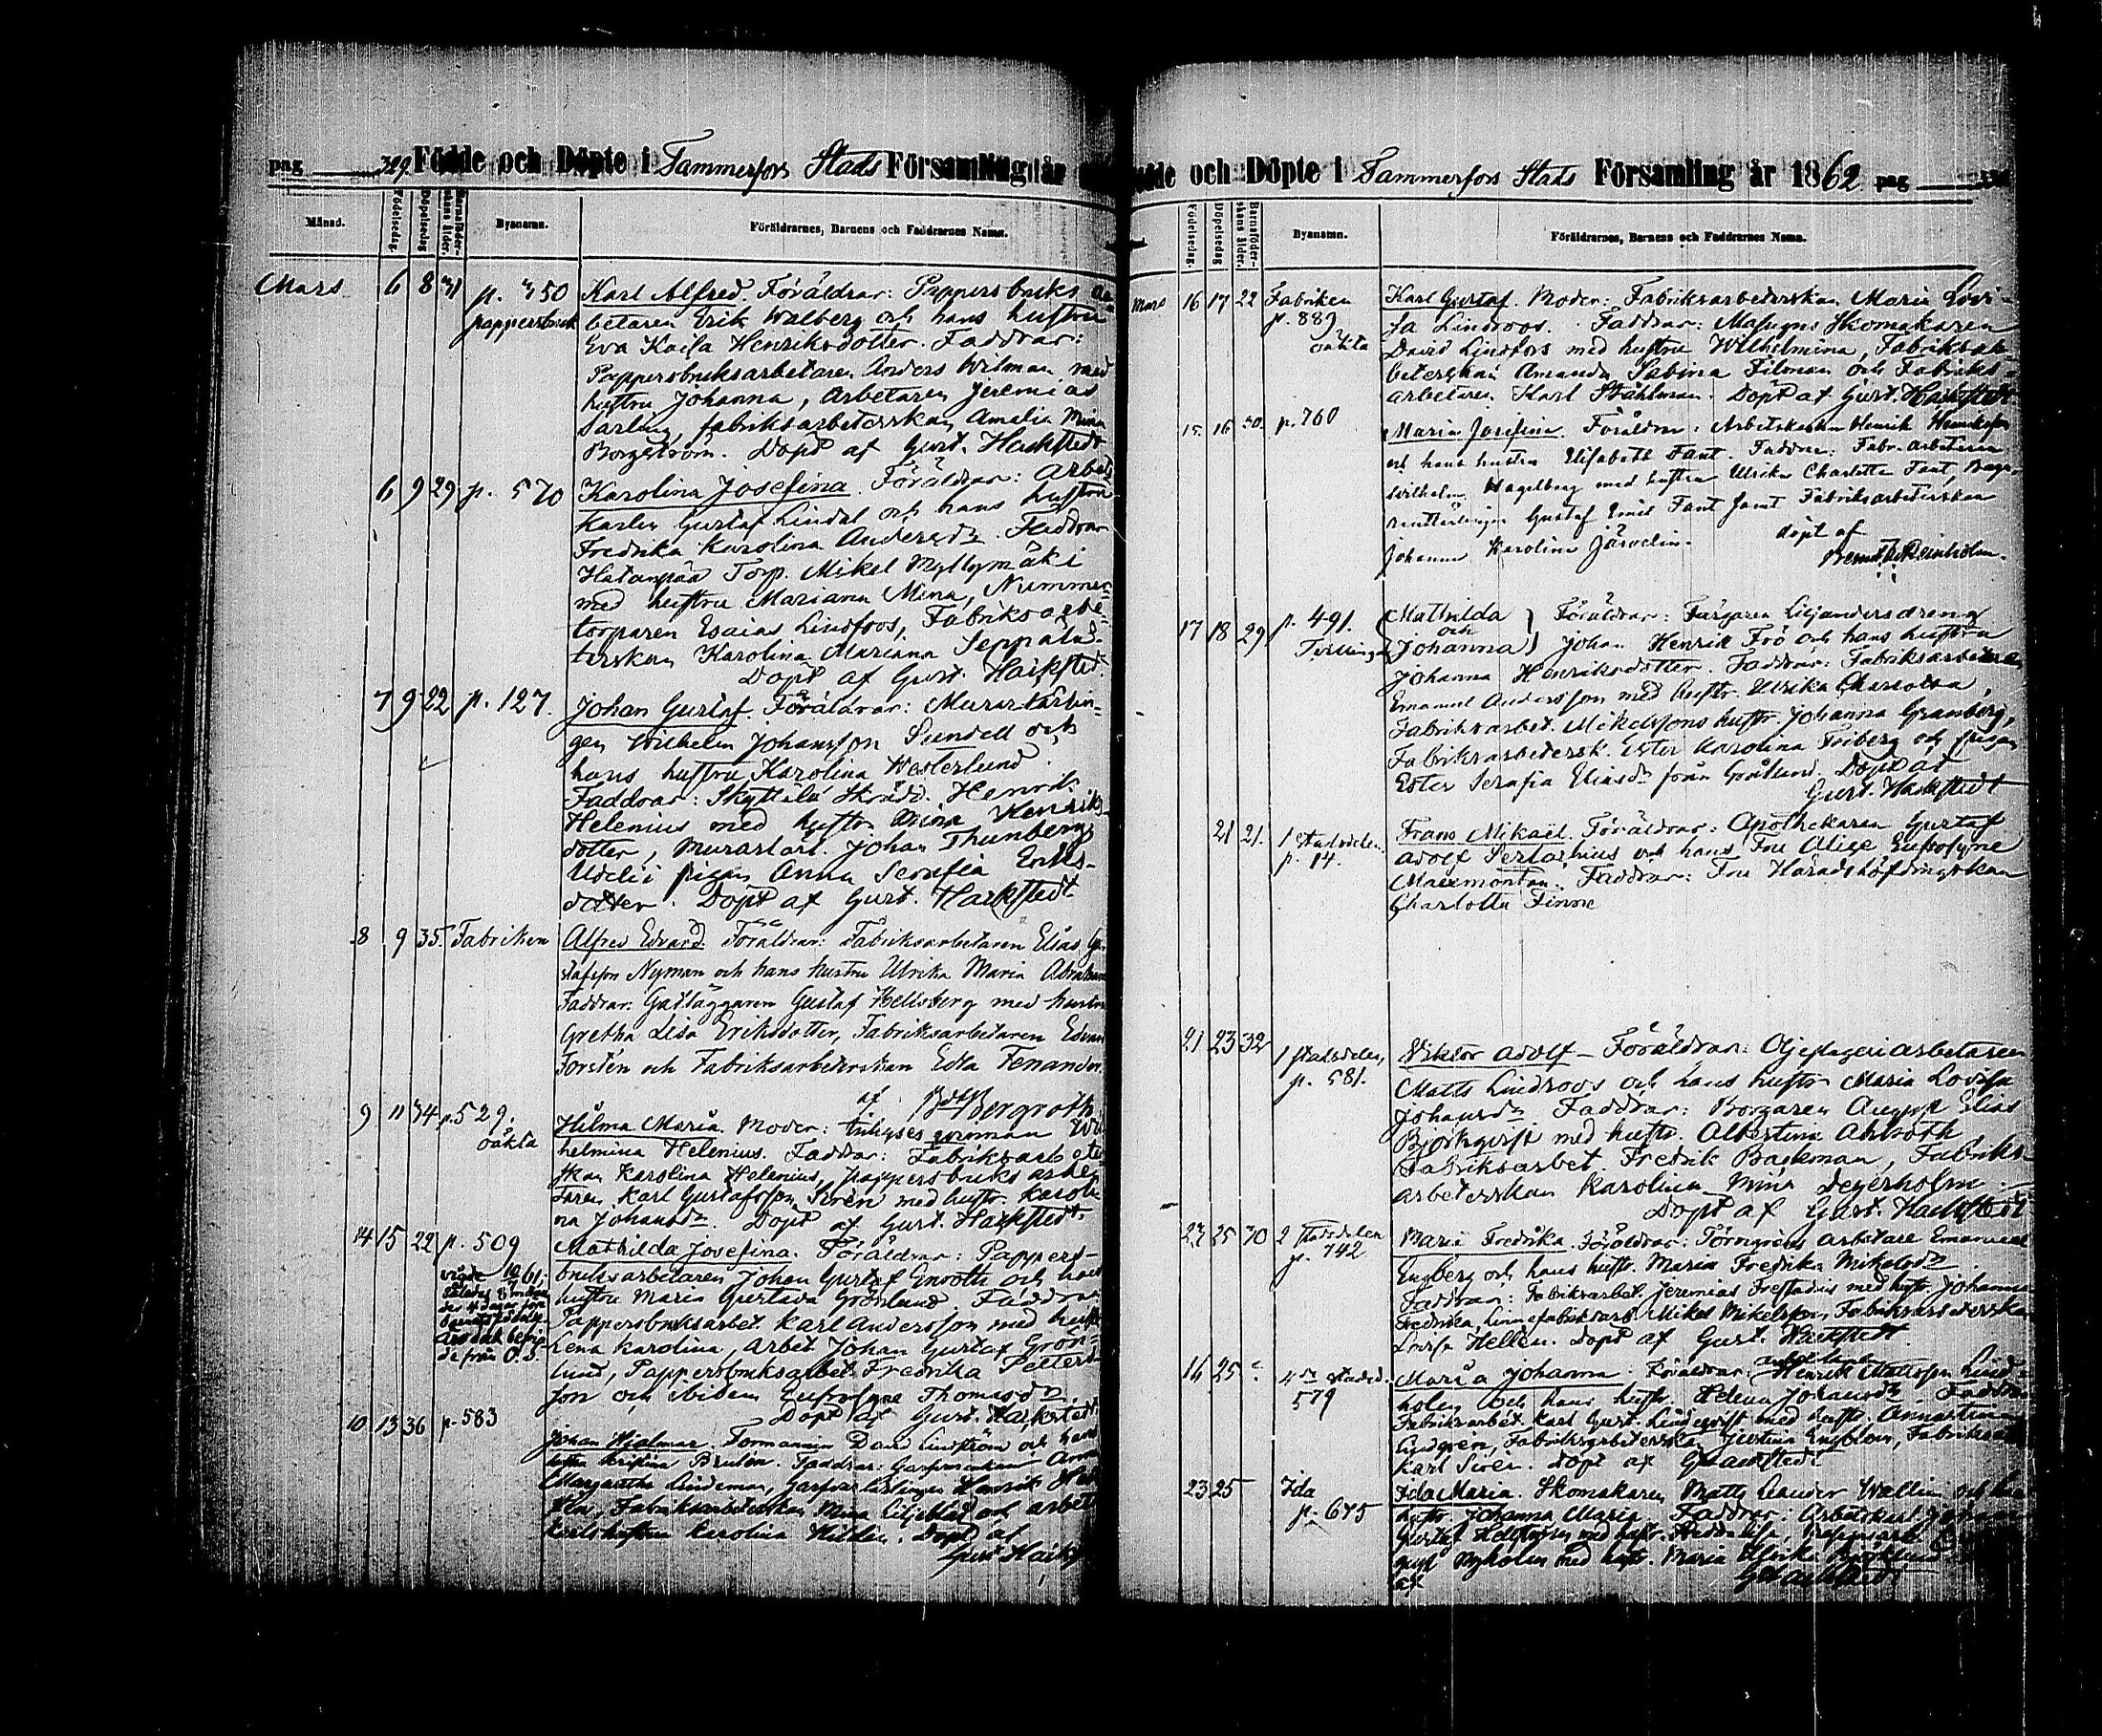 pag 329. Födde och Döpte i Tammerfors Stads Församling år
Månad. Födelsedag. Döpelsedag. Barnaföderskans ålder. Byanamn. Föräldrarnes, Barnens och Faddrarnes Namn.
Mars 6 8 31 p. 350 Karl Alfred. Föräldrar: Pappersbruks ar-
pappersbruk betaren Erik Walberg och hans hustru
Eva Kajsa Henriksdotter. Faddrar:
Pappersbruksarbetaren Anders Wilman med
hustru Johanna, Arbetaren Jeremias
Sarlin, fabriksarbeterskan Amalia Mina
Borgström. Döpt af Gust. Hackstedt
6 9 29 p. 570 Karolina Josefina. Föräldrar: Arbets
karlen Gustaf Lindal och hans hustru
Fredrika Karolina Andersdr. Faddrar
Hatanpää Torp. Mikel Myllymäki
med hustru Mariana Mina, Nummer
torparen Esaias Lindfors, Fabriksarbe-
terskan Karolina Mariana Seppälad.
Döpt af Gust. Hackstedt.
7 9 22 p. 127. Johan Gustaf. Föräldrar: Murarlärlin-
gen Wilhelm Johansson Sundell och
hans hustru Karolina Westerlund.
Faddrar: Skyttälä Skrädd. Henrik
Helenius med hustr. Mina Henriks-
dotter, Murarlärl. Johan Thunberg
Udeli pigan Anna Serafia Eriks-
dotter. Döpt af Gust. Hackstedt
8 9 35. Fabriken Alfred Edvard. Föräldrar: Fabriksarbetaren Elias Gu-
stafsson Nyman och hans hustru Ulrika Maria Abrahams
Faddrar: Gatläggaren Gustaf Hellsberg med hustru
Gretha Lisa Eriksdotter, Fabriksarbetaren Edvard
Forstén och Fabriksarbeterskan Edla Fenander.
af Bergroth
9 11 34 p. 529. Hilma Maria. Moder: inhyses qvinnan Wil-
oäkta helmina Helenius. Faddrar: Fabriksarbeter
skan Karolina Helenius, pappersbruksarbe
taren Karl Gustafsson Sirén med hustr. Karoli
na Johansdr. Döpt af Gust. Hackstedt.
14 15 22 p. 509 Mathilda Josefina. Föräldrar: Pappers-
vigde 10/7 61, bruksarbetaren Johan Gustaf Enrooth och hans
således 8 måna hustru Maria Gustava Grönlund. Faddrar
der 4 dagar före Pappersbruksarbet. Karl Andersson med hustr
Lena Karolina, Arbet. Johan Gustaf Grön-
lund, Pappersbruksarbet. Fredrika Petters-
son och Eufrosyne Thomasdr
Döpt af Gust. Hackstedt
10 13 36 p. 583 Johan Hjalmar. Formannen David Lindström och hans
hustru Kristina Brulin. Faddrar: Garfvarenkan Anna
Margaretha Lindeman, Garfvarlärlingen Henrik
Fabriksarbeterskan Mina Liljeblad och arbets
karlshustrun Karolina Hildén. Döpt af
Gust Hackst
Födde och Döpte i Tammerfors Stads Församling år 1862 pag
Födelsedag. Döpelsedag. Barnaföderskans ålder. Byanamn. Föräldrarnes, Barnens och Faddrarnes Namn.
Mars 16 17 22 Fabriken Karl Gustaf. Moder: Fabriksarbeterskan Maria Lovi-
p. 889 sa Lindroos. Faddrar: Masugns Skomakaren
oäkta David Lindfors med hustru Wilhelmina, Fabriksar-
beterskan Amanda Sabina Filman och Fabriks-
arbetaren Karl Ståhlman. Döpt af Gust. Hackstedt
15 16 30. p. 760 Maria Josefina. Föräldrar: Arbetskarlen Henrik Henriksson
och hans hustru Elisabeth Fant. Faddrar: Fabr. arbetaren
Wilhelm Hagelberg med hustru Ulrika Charlotta Fant, Baga-
Gustaf Emil Fant samt Fabriksarbeterskan
Johanna Karolina Järvelin. döpt af
Reinholm.
17 18 29 p. 491. Mathilda } Föräldrar: Färgaren Liljanders dreng
Tvillingar och
Johanna } Johan Henrik Frö och hans hustru
Johanna Henriksdotter. Faddrar: Fabriksarbetaren
Emanuel Andersson med hustr. Ulrika Charlotta,
Fabriksarbet. Mikelssons hustr. Johanna Granberg,
Fabriksarbetersk. Ester Karolina Friberg och pigan
Ester Serafia Eliasdr från Grålund. Döpt af
Gust. Hackstedt
21 21. 1 stadsdelen. Frans Mikaël. Föräldrar: Apothekaren Gustaf
p. 14. Adolf Serlachius och hans Fru Alise Eufrosyne
Maexmontan. Faddrar: Fru Häradshöfdingskan
Charlotta Finne
21 23 32 1 stadsdelen, Viktor Adolf – Föräldrar: Oljeslageriarbetaren
p. 581. Matts Lindroos och hans hustr. Maria Lovisa
Johansdr Faddrar: Borgaren August Elias
Björkqvist med hustr. Albertina Ahlroth
Fabriksarbet. Fredrik Backman, Fabriks-
arbeterskan Karolina Mina Degerholm.
Döpt af Gust. Hackstedt
23 25 30 2 stadsdelen Maria Fredrika. Föräldrar: Förnyrens arbetare Emanuel
p. 742 Engberg och hans hustr. Maria Fredrika Mikelsdr
Faddrar: Fabriksarbet. Jeremias Frestadius med hustr. Johanna
Fredrika, Linnefabriksarb. Mikel Mikelsson, Fabriksarbeterska
Lovisa Hellén. Döpt af Gust. Hackstedt
16 25 4 de stadsd. Maria Johanna. Föräldrar: Henrik Mattsson Lind-
579 holm och hans hustr. Helena Johansdr Faddrar
Fabriksarbet. Karl Gust. Lindeqvist med hustr. Annastina
Lindgrén, Fabriksarbeterska Justina Engblom, Fabriksarb
Karl Siren. Döpt af G Hackstedt
23 25 Ida Ida Maria. Skomakaren Matts Leander Wallin och hans
p. 675 hustr. Johanna Maria. Faddrar: Arbetskarl Johan
Gustaf med hustr.
Nyholm med hustr. Maria Ulrika Björklund
af G Hackstedt